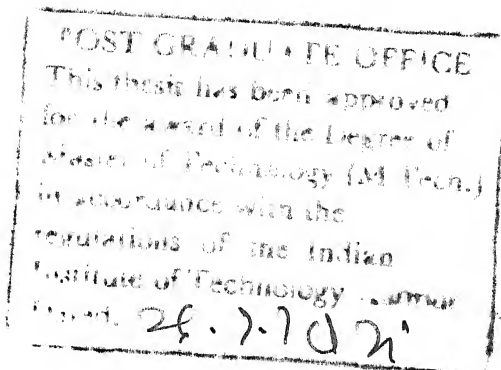 POST GRADUATE OFFICE
This thesis has been approved
for the award of the Degree of
Master of Technology (M Tech.)
in accordance with the
regulations of the Indian
Institute of Technology
Dated.